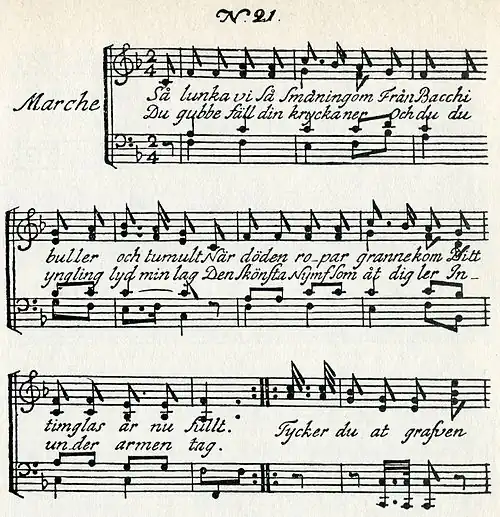 No. 21.
Marche
2/4
Så lunka vi så småningom Från Bacchi
Du gubbe fäll din krycka ner Och du du
2/4
buller och tumult När döden ro-par granne kom Ditt
yngling lyd min lag Den skönsta Nymf som åt dig ler In-
timglas är nu fullt. Tycker du at grafven
un-der armen tag.